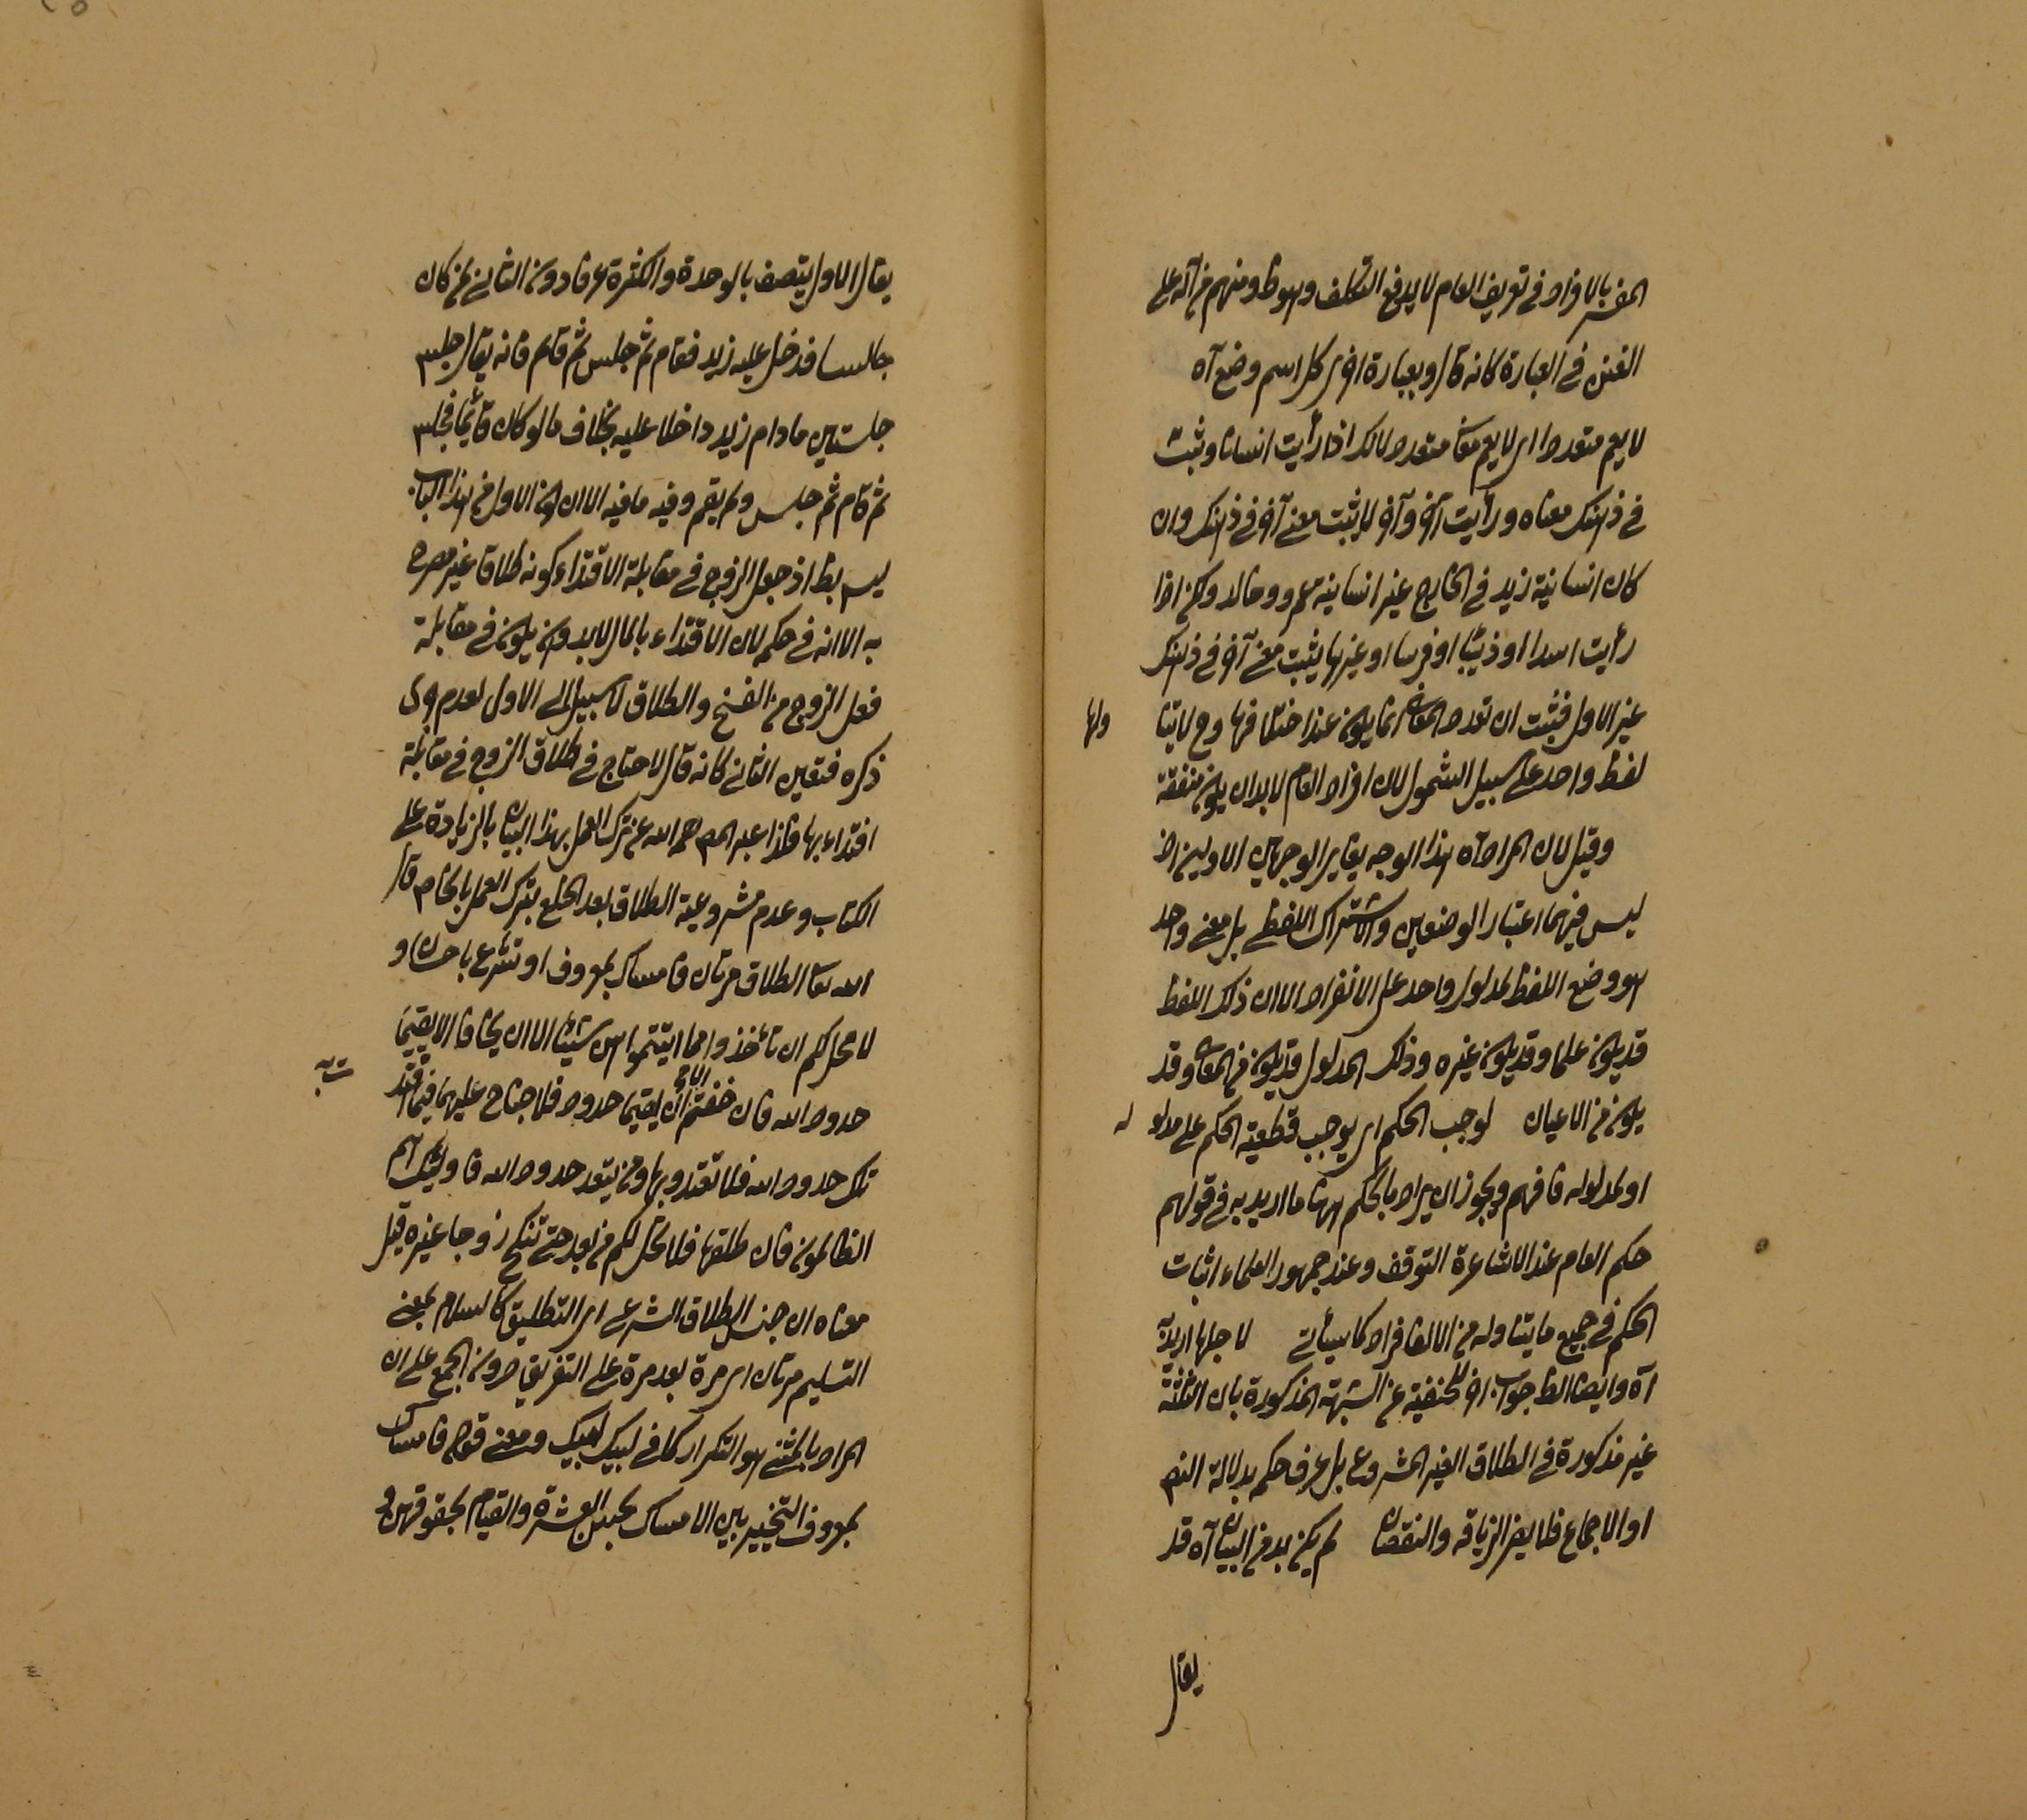 المفسر بالافراد في تعريف العام لا يدفع التكلف وهو ظ ومنهم من آله على
الفنن في العبارة كانه قال وبعبارة اخرى كل اسم وضع آه
لا يعم متعددا اى لا يعم معان متعدد لانك اذا رأيت انسانا وثبت
في ذهنك معناه ورأيت آخر وآخر لا يثبت معنى آخر في ذهنك وان
كان انسانية زيد في الخارج غير انسانية عمرو وخالد ولكن اذا
رأيت اسدا او ذئبا او فرسا او غيرها يثبت معنى آخر في ذهنك
غير الاول فثبت ان تعدد المعانى انما يكون عند اختلافها وح لا يتناولها
لفظ واحد على سبيل الشمول لان افراد العام لا بد ان يكون متفقة
وقيل لان المراد آه هذا الوجه يغاير الوجهين الاولين اذ
ليس فيهما اعتبار الوضعين والاشتراك اللفظي بل معنى واحد
هو وضع اللفظ لمدلول واحد على الانفراد الا ان ذلك اللفظ
قد يكون علما وقد يكون غيره وذلك المدلول قد يكون من المعانى وقد
يكون من الاعيان لوجب الحكم اى يوجب قطعية الحكم على مدلوله
او لمدلوله فافهم ويجوز ان يراد بالحكم ههنا ما اريد به في قولهم
حكم العام عند الاشاعرة التوقف وعند جمهور العلماء اثبات
الحكم في جميع ما يتناوله من الافراد كما سيأتى لاجلها اريد به
آه وايضا الظ جواب آخر للحنفية عن الشبهة المذكورة بان الثلثة
غير مذكورة في الطلاق الغير المشروع بل عرف حكم بدلالة النص
او الاجماع فلا يضر الزيادة والنقصان لم يكن بد من البيان آه قد
يقال
يقال الاول يتصف بالوحدة والكثرة عرفا دون الثانى فمن كان
جالسا فدخل عليه زيد فقام ثم جلس ثم قام فانه يقال جلس
جلستين ما دام زيد داخلا عليه بخلاف ما لو كان قائما فجلس
ثم قام ثم جلس ولم يقم وفيه ما فيه الا ان كون الاول من هذا الباب
ليس بظ اذ جعل الزوج في مقابلة الافتداء كونه طلاقا غير مصرح
به الا انه في حكم لان الافتداء بالمال لابد وان يكون في مقابلة
فعل الزوج من الفسخ والطلاق لا سبيل الى الاول لعدم جرى
ذكره فتعين الثانى كانه قال لا جناح في طلاق الزوج في مقابلة
افتداء بها فلذا عبر المص رحمه الله عن ترك العمل بهذا البيان بالزيادة على
الكتاب وعدم مشروعية الطلاق بعد الخلع بترك العمل بالخاص قال
الله تعا الطلاق مرتان فامساك بمعروف او تسريح باحسان و
لا يحل لكم ان تأخذوا مما آتيتموهن شيئا الا ان يخافا الا يقيما
حدود الله فان خفتم الا يقيما حدود الله فلا جناح عليهما فيما افتدت به
تلك حدود الله فلا تعتدوها ومن يتعد حدود الله فاولئك هم
الظالمون فان طلقها فلا تحل لكم من بعد حتى تنكح زوجا غيره قيل
معناه ان جنس الطلاق الشرعى اى التطليق كالسلام بمعنى
التسليم مرتان اى مرة بعد مرة على التفريق دون الجمع على ان
المراد بالمثنى هو التكرار كما في لبيك لبيك ومعنى قوله فامساك
بمعروف التخيير بين الامساك بحسن العشرة والقيام بحقوقهن و